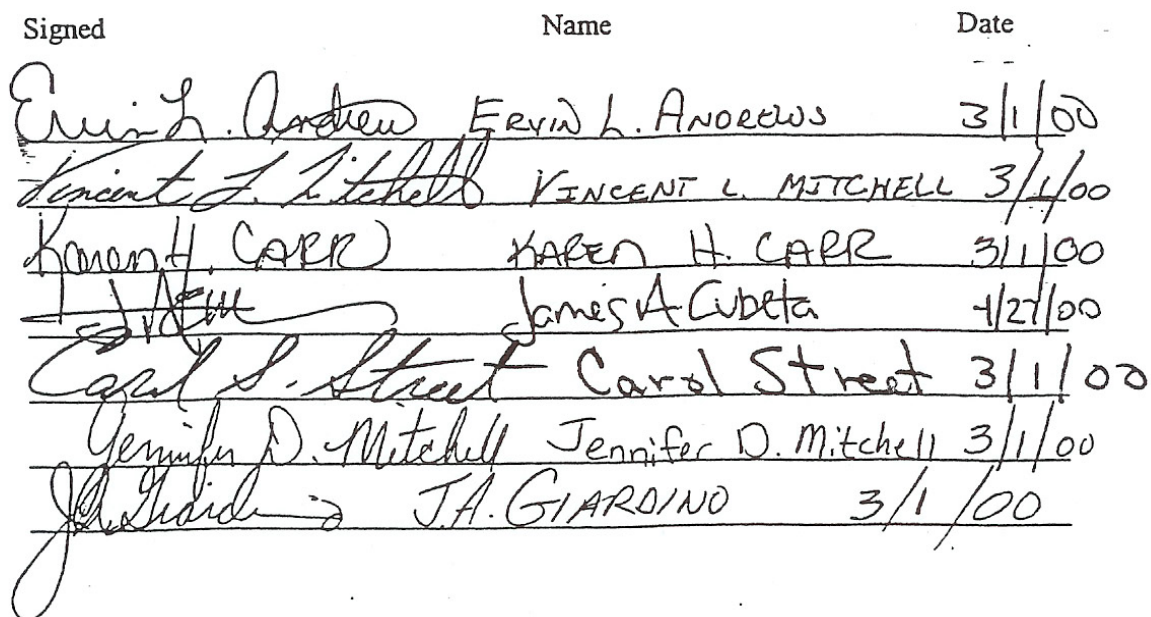 Signed Name Date
Ervin L. Andrew ERVIN L. ANDREWS 3/1/00
Vincent L. Mitchell VINCENT L. MITCHELL 3/1/00
Karen H. CARR KAREN H. CARR 3/1/00
James A Cubeta 4/27/00
Carol S. Street Carol Street 3/1/00
Jennifer D. Mitchell Jennifer D. Mitchell 3/1/00
J.A. Giardino J.A. GIARDINO 3/1/00